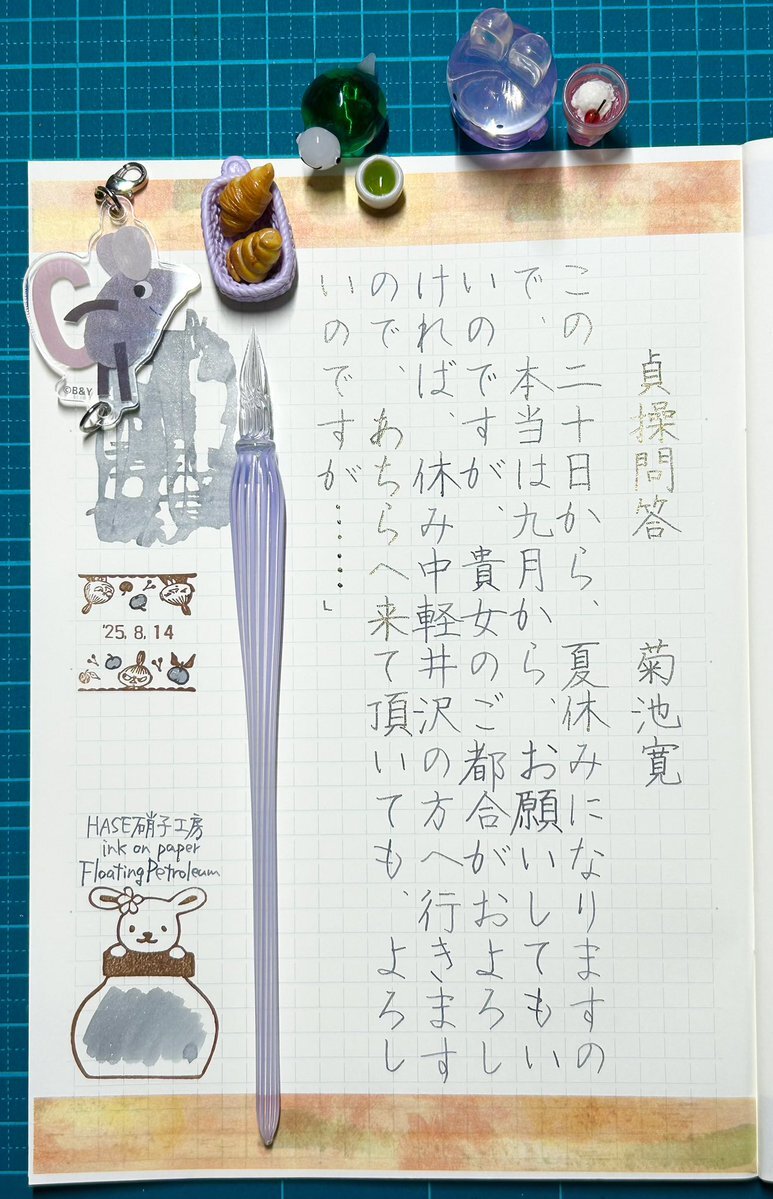 貞操問答　菊池寛
この二十日から、夏休みになりますの
で、本当は九月から、お願いしてもい
いのですが、貴女のご都合がおよろし
ければ、休み中軽井沢の方へ行きます
ので、あちらへ来て頂いても、よろし
いのですが……」
©B&Y
'25.8.14
HASE硝子工房
ink on paper
Floating Petroleum